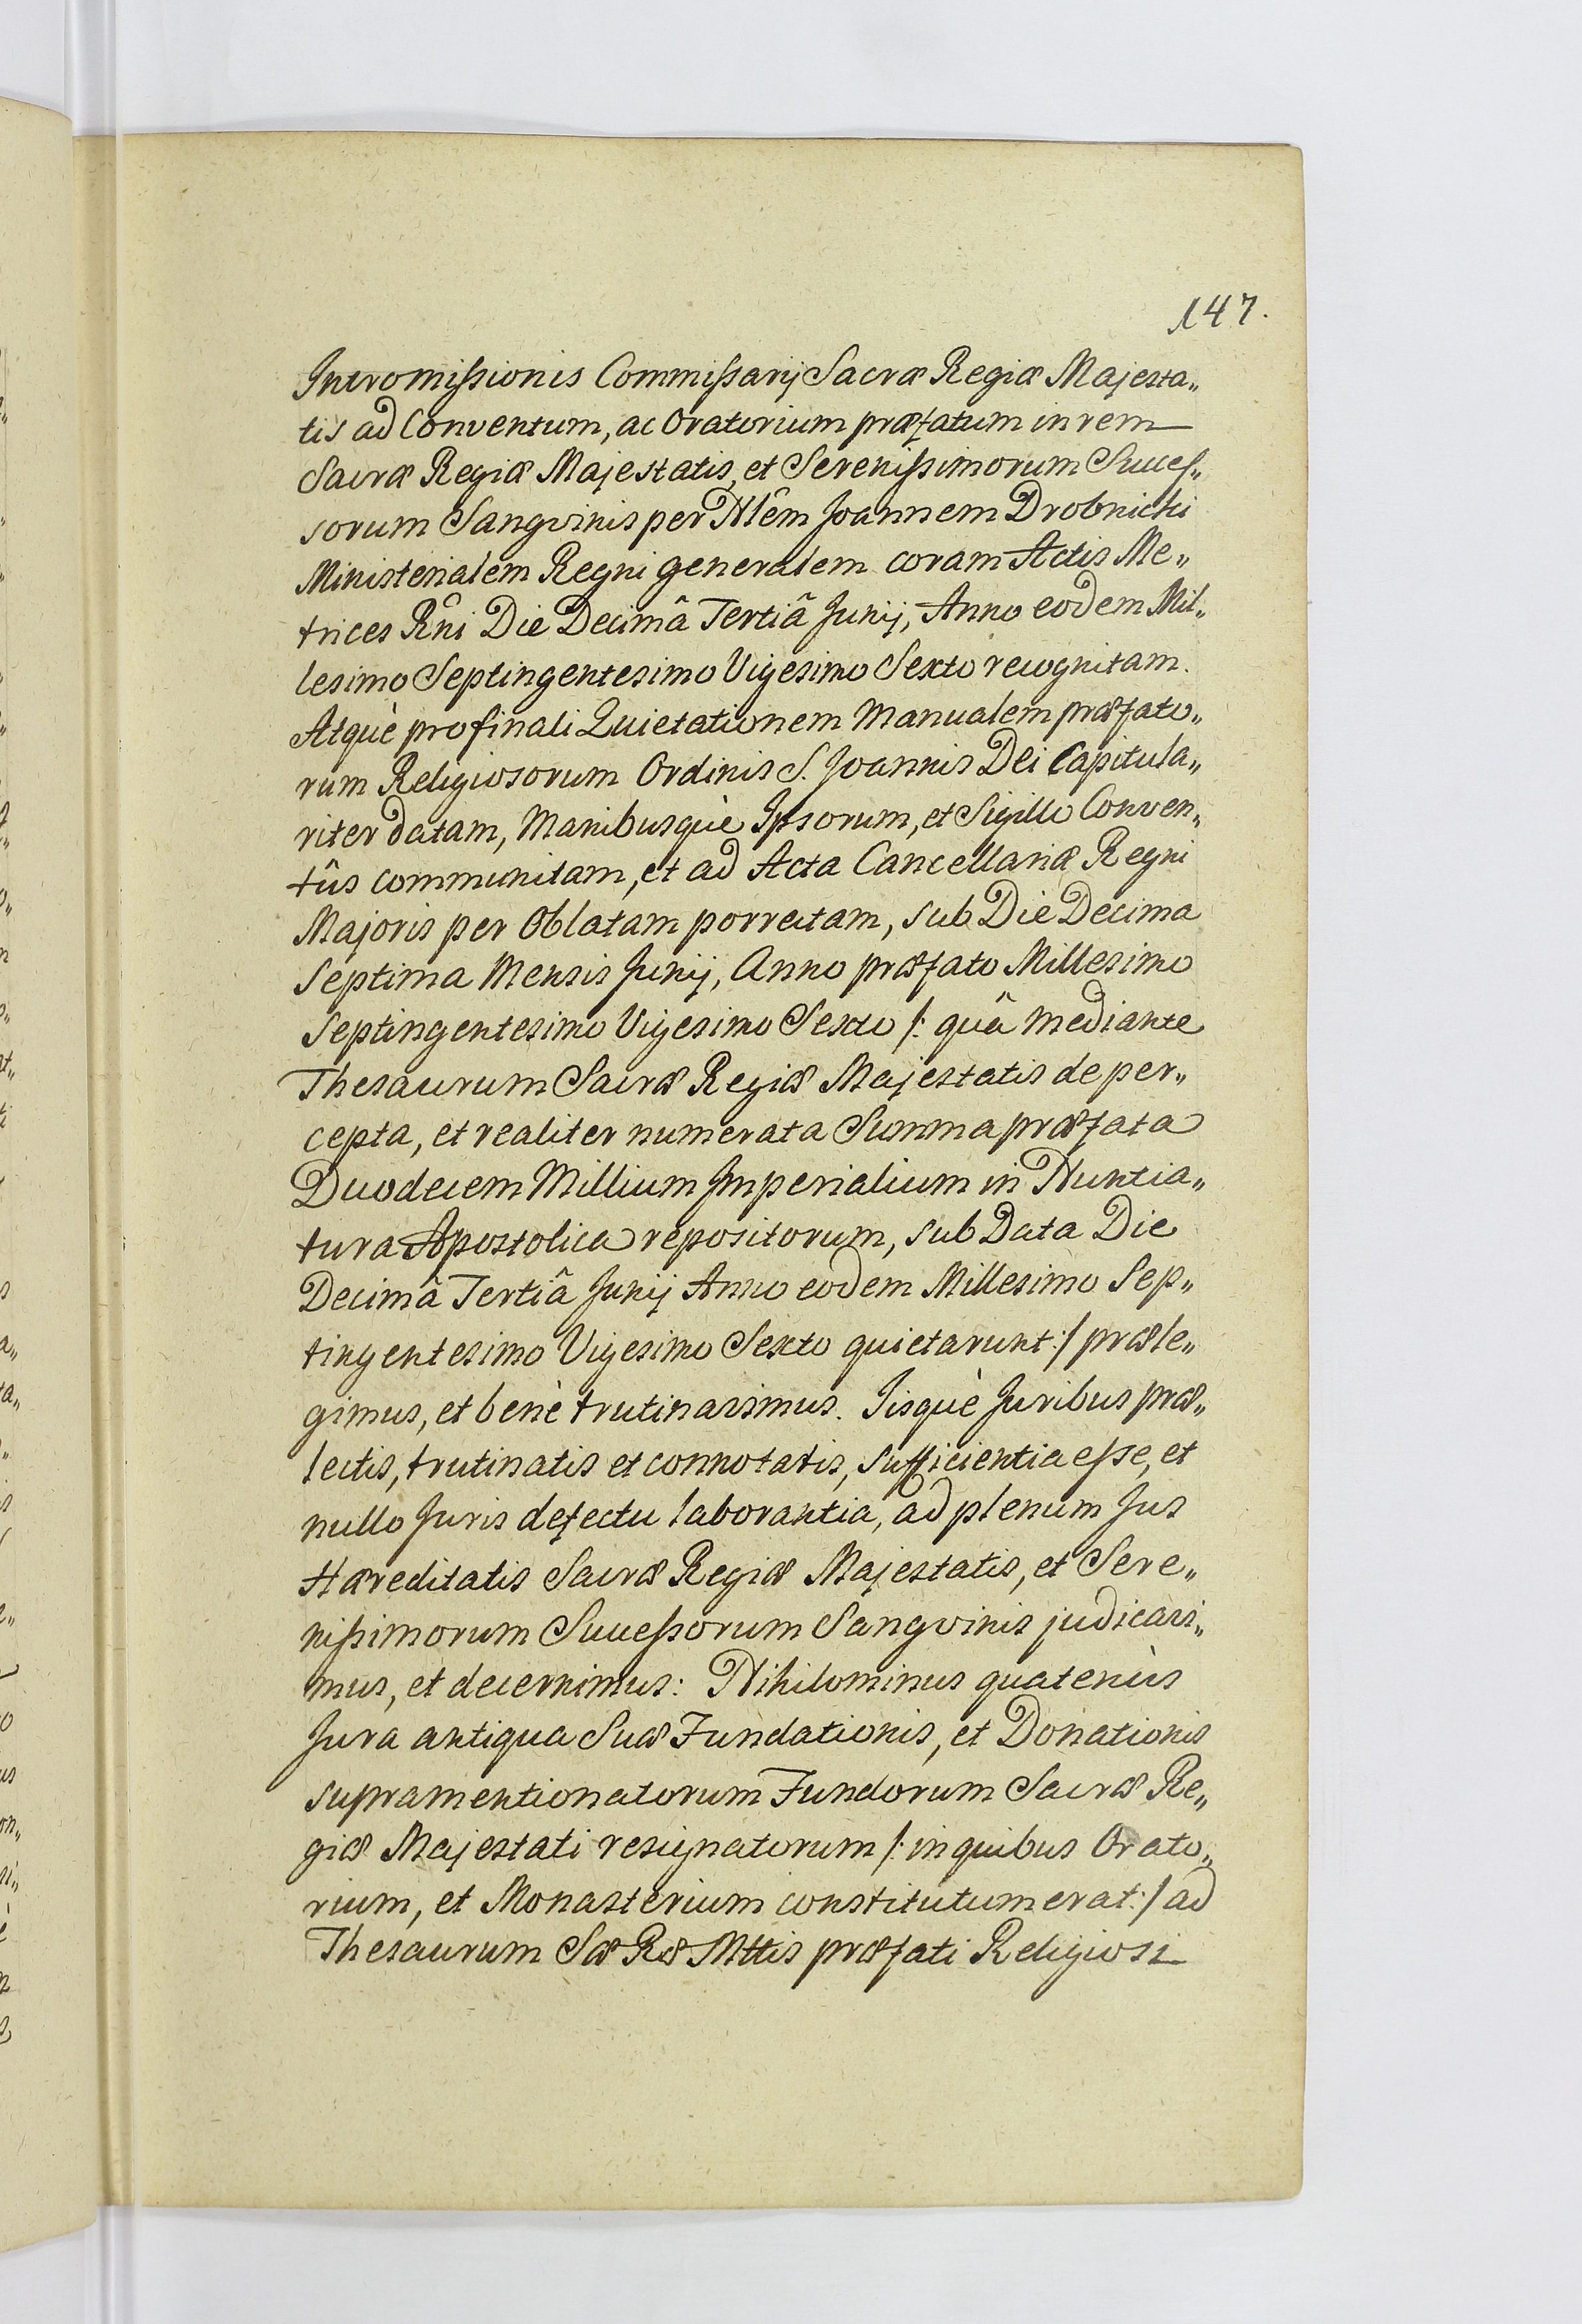 147.
Intromissionis Commissarij Sacræ Regiæ Majesta„
tis ad Conventum, ac Oratorium præfatum in rem
Sacræ Regiæ Majestatis, et Serenissimorum Succes„
sorum Sangvinis per Nlêm Joannem Drobnicki
Ministerialem Regni generalem coram Actis Me„
trices Rni Die Decimâ Tertiâ Junij, Anno eodem Mil„
lesimo Septingentesimo Vigesimo Sexto recognitam.
Atquè pro finali Quietationem Manualem præfato„
rum Religiosorum Ordinis S. Joannis Dei Capitula„
riter datam, Manibusquè Ipsorum, et Sigillo Conven„
tûs communitam, et ad Acta Cancellariæ Regni
Majoris per Oblatam porrectam, sub Die Decima
Septima Mensis Junij, Anno præfato Millesimo
Septingentesimo Vigesimo Sexto /: quâ mediante
Thesaurum Sacræ Regiæ Majestatis de per„
cepta, et realiter numerata Summa præfata
Duodecem Millium Imperialium in Nuntia„
tura Apostolica repositorum, sub Data Die
Decimâ Tertiâ Junij Anno eodem Millesimo Sep„
tingentesimo Vigesimo Sexto quietarunt :/ præle„
gimus, et benè trutinavimus. Iisquè Juribus præ„
lectis, trutinatis et connotatis, sufficientia esse, et
nullo Juris defectu laborantia, ad plenum Jus
Hæreditatis Sacræ Regiæ Majestatis, et Sere„
nissimorum Successorum Sangvinis judicavi„
mus, et decernimus: Nihilominus quatenùs
Jura antiqua Suæ Fundationis, et Donationis
supramentionatorum Fundorum Sacræ Re„
giæ Majestati resignatorum /: in quibus Orato„
rium, et Monasterium constitutum erat :/ ad
Thesaurum Sæ Ræ Mttis præfati Religiosi